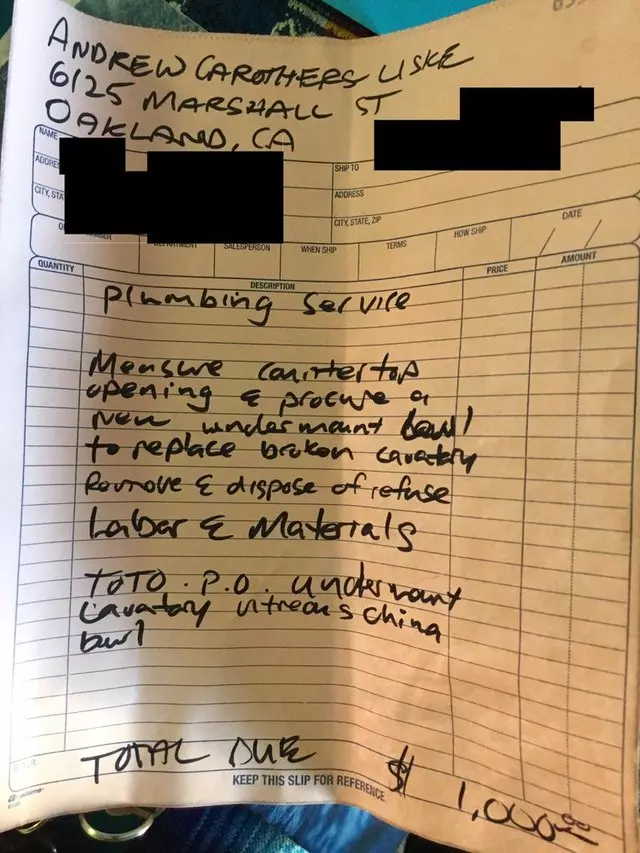 ANDREW CAROTHERS LISKE
6125 MARSHALL ST
OAKLAND, CA
NAME
SHIP TO
ADDRESS
CITY, STATE, ZIP
SALESPERSON
WHEN SHIP
TERMS
HOW SHIP
DATE
QUANTITY
DESCRIPTION
PRICE
AMOUNT
Plumbing Service
Measure countertop
opening & procure a
new undermount bowl
to replace broken lavatory
Remove & dispose of refuse
Labor & Materials
TOTO. P.O. undermount
Lavatory vitreous china
bowl
TOTAL DUE
$ 1,000.00
KEEP THIS SLIP FOR REFERENCE